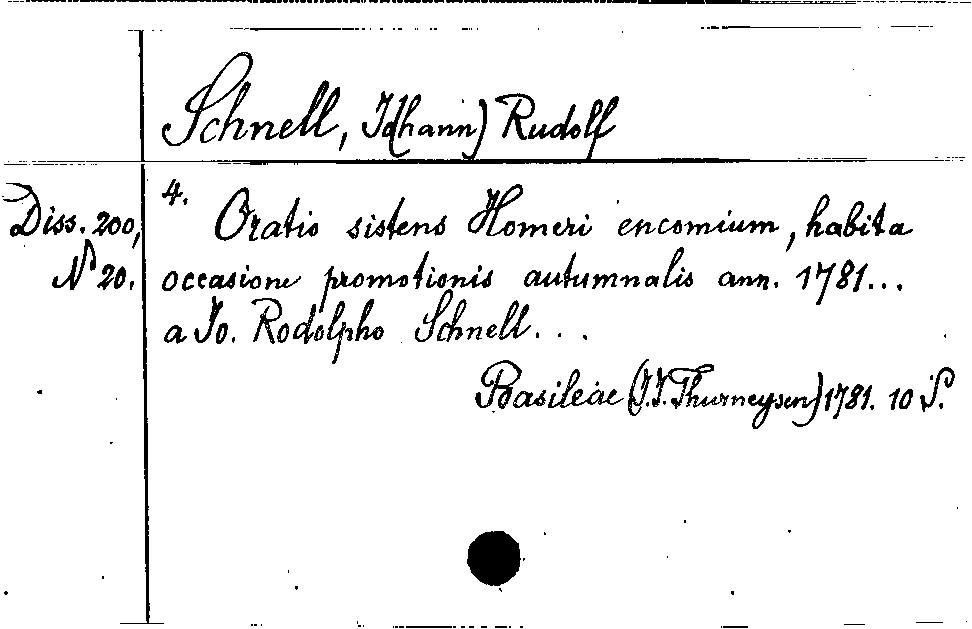 Schnell, Jo(hann) Rudolf
Diss. 200,
N° 20.
4.
Oratio sistens Homeri encomium, habita
occasione promotionis autumnalis ann. 1781...
a Jo. Rodolpho Schnell...
Basileae (J.J. Thurneysen) 1781. 10 S.